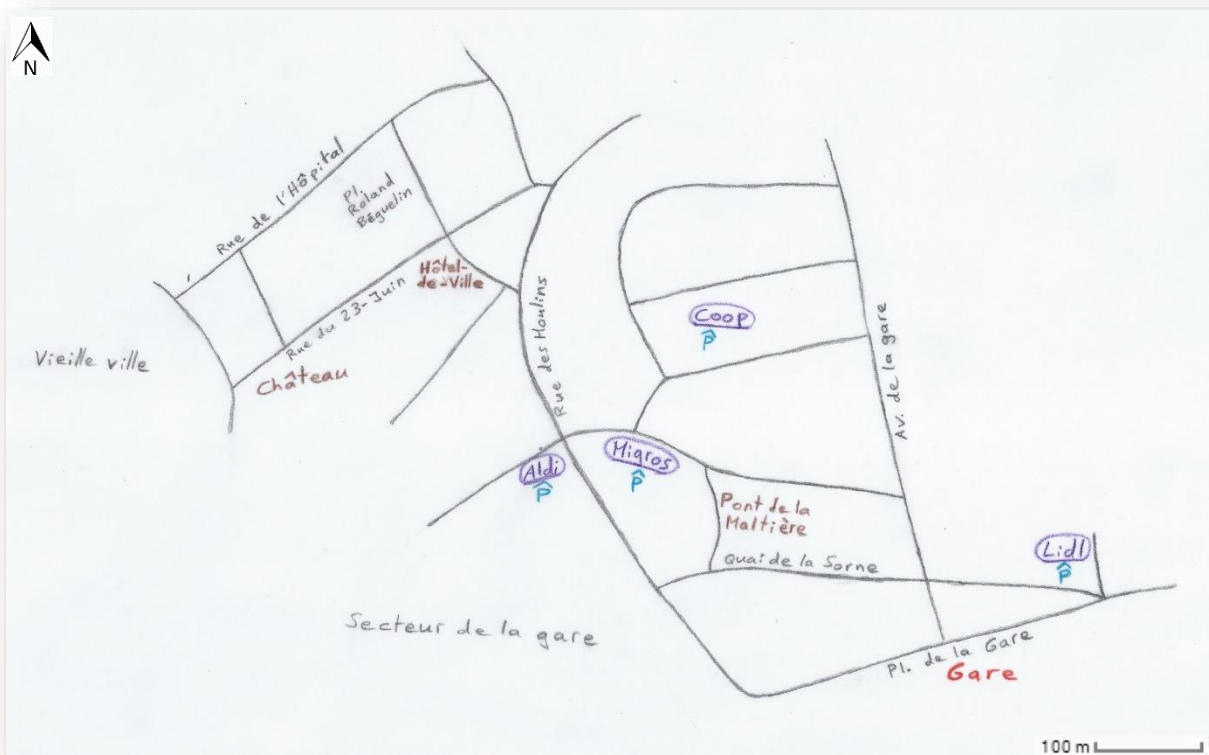 N
Rue de l'Hôpital
Pl.
Roland
Béguelin
Hôtel-
de-Ville
Rue du 23-Juin
Château
Vieille ville
Rue des Moulins
Coop
P
Av. de la gare
Aldi
P
Migros
P
Pont de la
Maltière
Quai de la Sorne
Lidl
P
Secteur de la gare
Pl. de la Gare
Gare
100 m